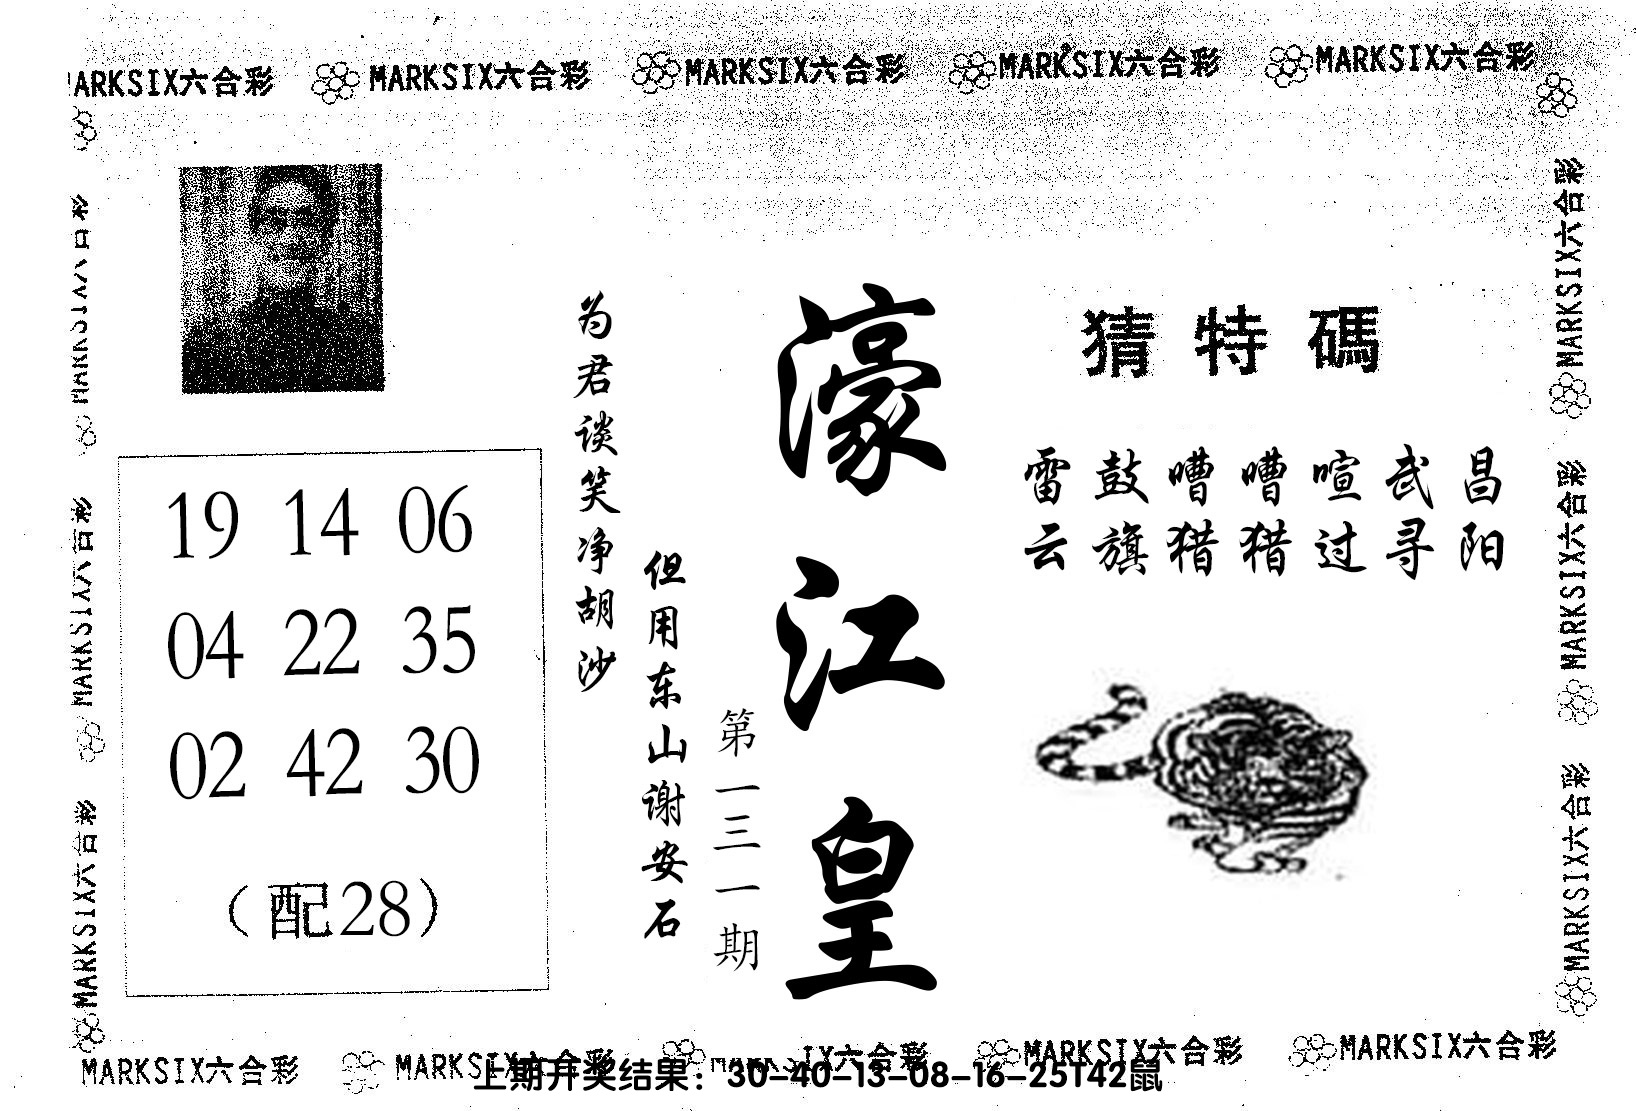 MARKSIX六合彩 MARKSIX六合彩 MARKSIX六合彩 MARKSIX六合彩 MARKSIX六合彩
MARKSIX六合彩
MARKSIX六合彩
MARKSIX六合彩
19 14 06
04 22 35
02 42 30
(配28)
为君谈笑净胡沙
但用东山谢安石
第一三一期
濠江皇
猜特碼
雷鼓嘈嘈喧武昌
云旗猎猎过寻阳
MARKSIX六合彩
MARKSIX六合彩
MARKSIX六合彩
MARKSIX六合彩 MARKSIX六合彩 IX六合彩 MARKSIX六合彩 MARKSIX六合彩
上期开奖结果：30-40-13-08-16-25T42鼠